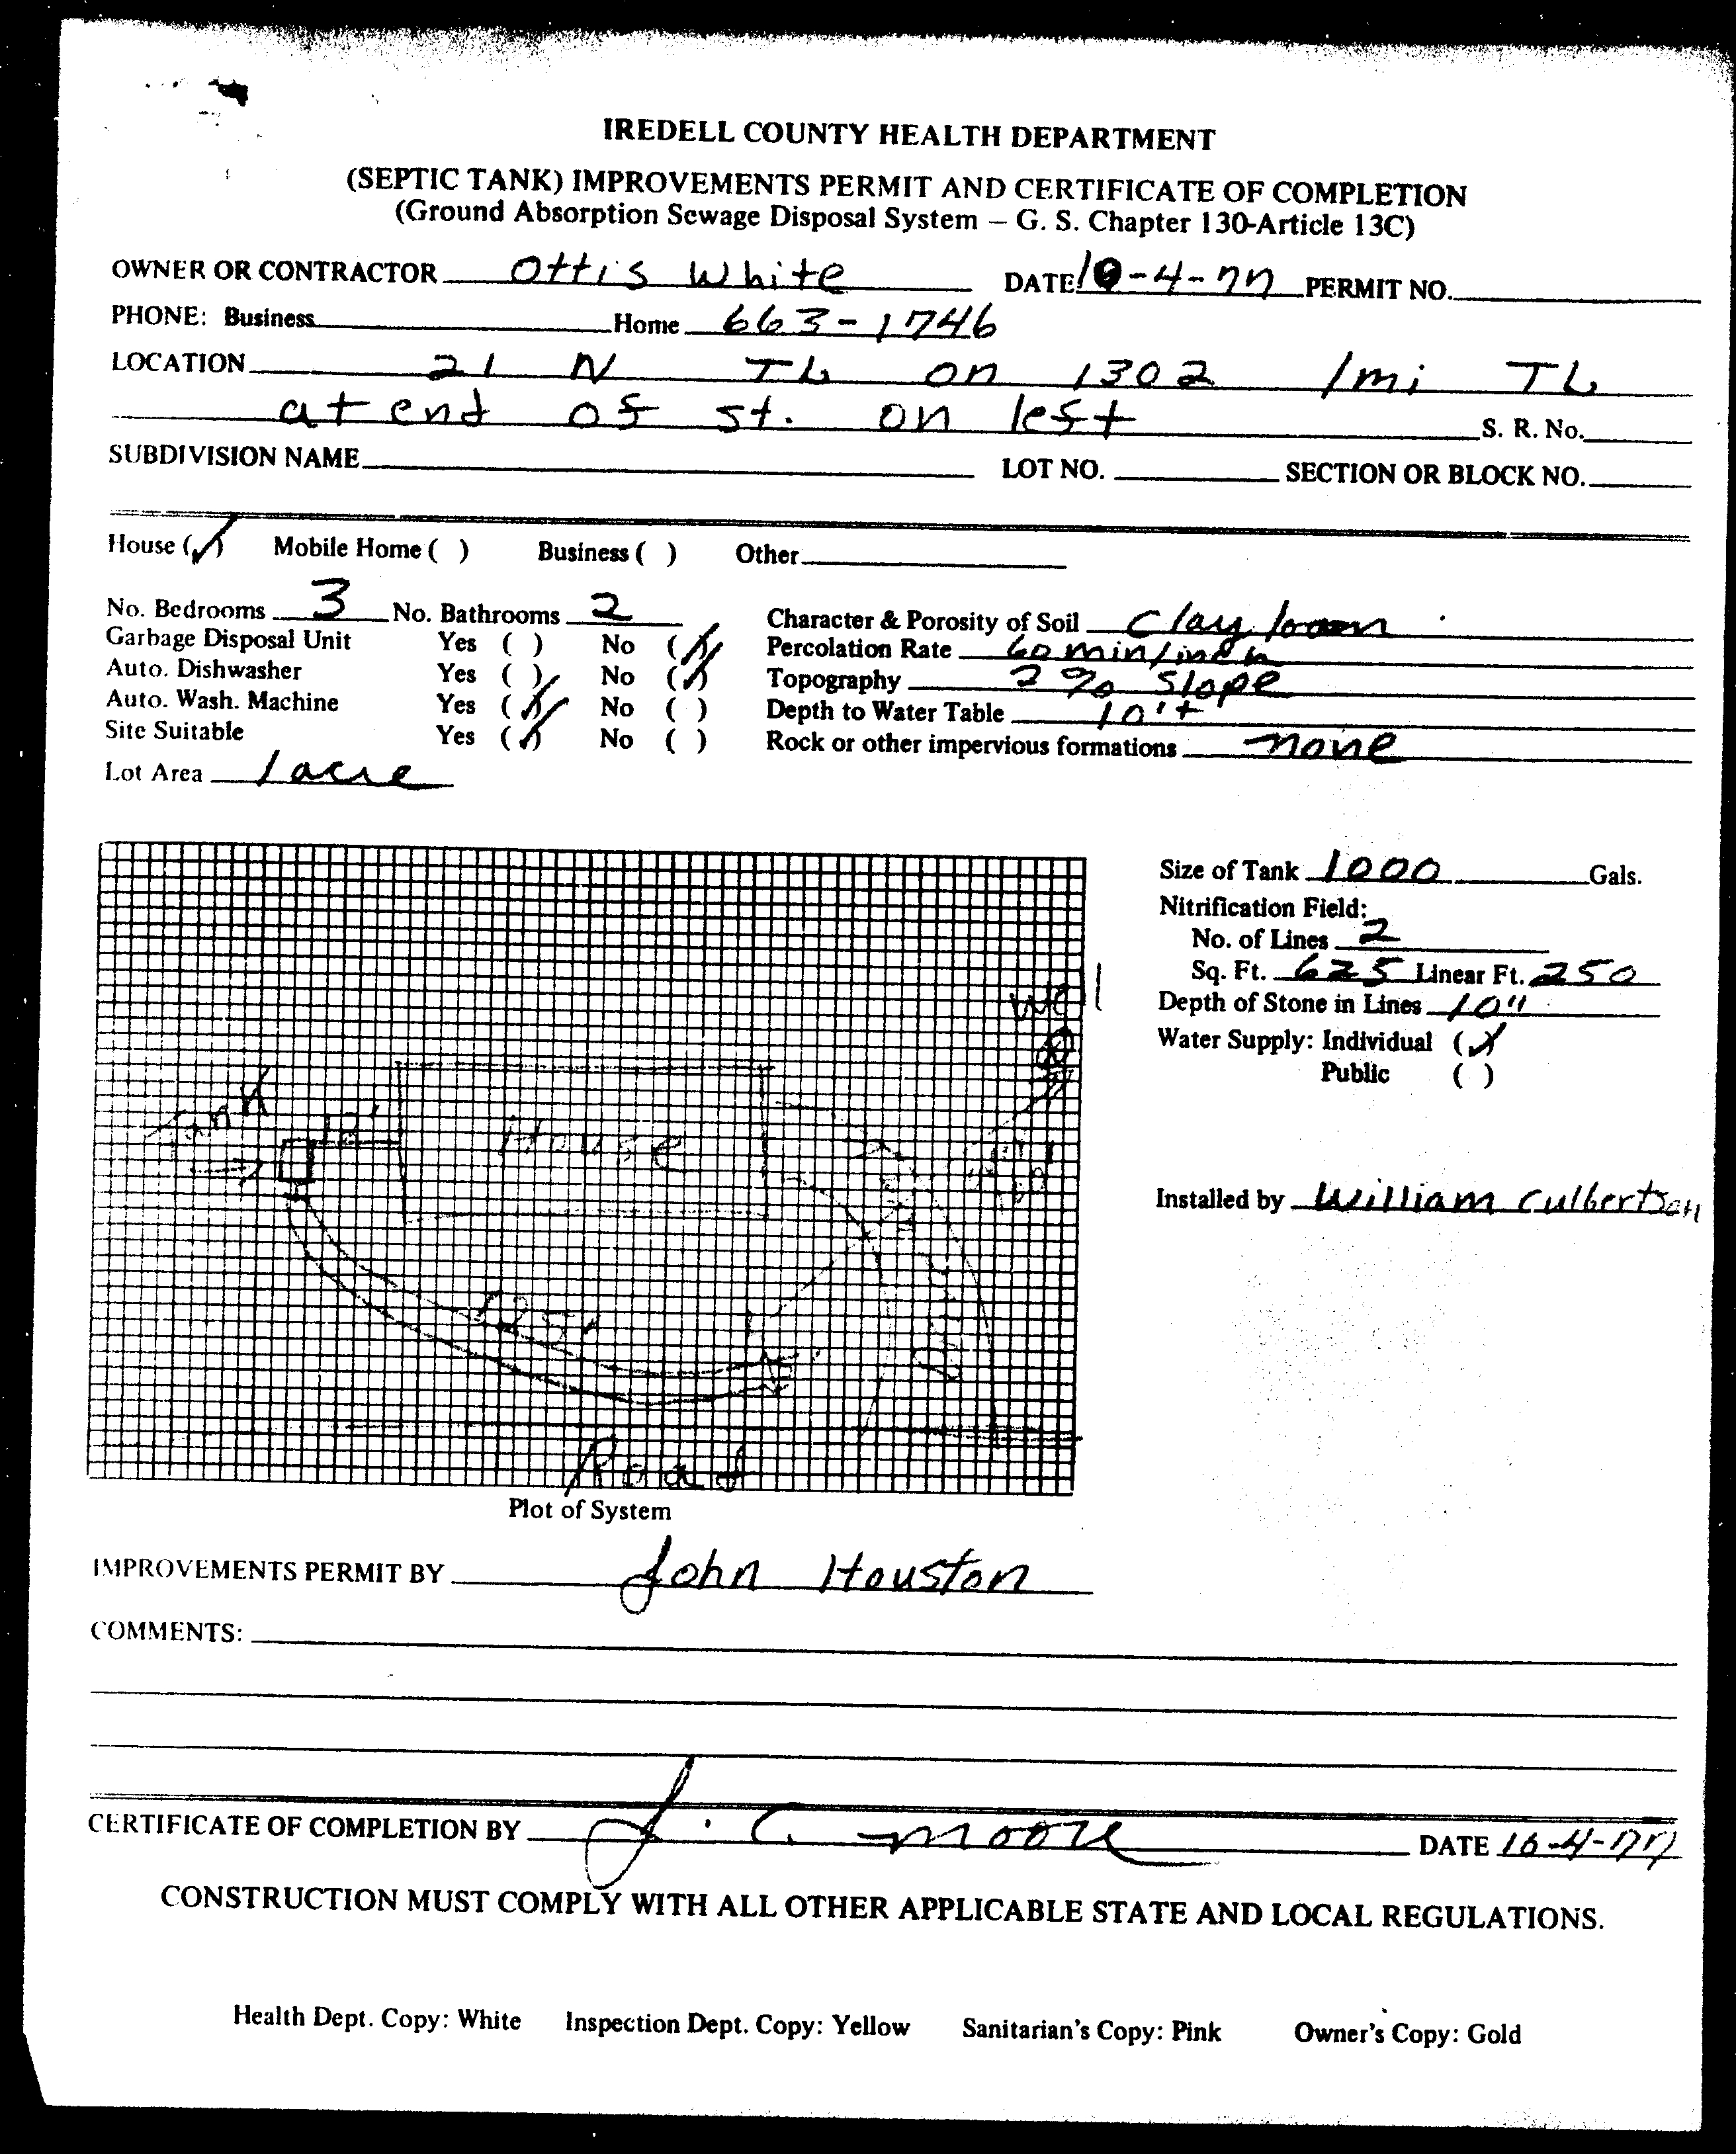 IREDELL COUNTY HEALTH DEPARTMENT
(SEPTIC TANK) IMPROVEMENTS PERMIT AND CERTIFICATE OF COMPLETION
(Ground Absorption Sewage Disposal System – G. S. Chapter 130-Article 13C)
OWNER OR CONTRACTOR Ottis White DATE 10-4-77 PERMIT NO.
PHONE: Business Home 663-1746
LOCATION 21 N TL on 1302 1mi TL
at end of st. on left S. R. No.
SUBDIVISION NAME LOT NO. SECTION OR BLOCK NO.
House (✓) Mobile Home ( ) Business ( ) Other
No. Bedrooms 3 No. Bathrooms 2 Character & Porosity of Soil Clay loam
Garbage Disposal Unit Yes ( ) No (✓) Percolation Rate 60 min/inch
Auto. Dishwasher Yes ( ) No (✓) Topography 2% slope
Auto. Wash. Machine Yes (✓) No ( ) Depth to Water Table 10'+
Site Suitable Yes (✓) No ( ) Rock or other impervious formations none
Lot Area 1 acre
Size of Tank 1000 Gals.
Nitrification Field:
No. of Lines 2
Sq. Ft. 625 Linear Ft. 250
Depth of Stone in Lines 10"
Water Supply: Individual (✓)
Public ( )
Well
Tank 12' House
125'
Road
Installed by William Culbertson
Plot of System
IMPROVEMENTS PERMIT BY John Houston
COMMENTS:
CERTIFICATE OF COMPLETION BY J. C. Moore DATE 10-4-77
CONSTRUCTION MUST COMPLY WITH ALL OTHER APPLICABLE STATE AND LOCAL REGULATIONS.
Health Dept. Copy: White Inspection Dept. Copy: Yellow Sanitarian's Copy: Pink Owner's Copy: Gold